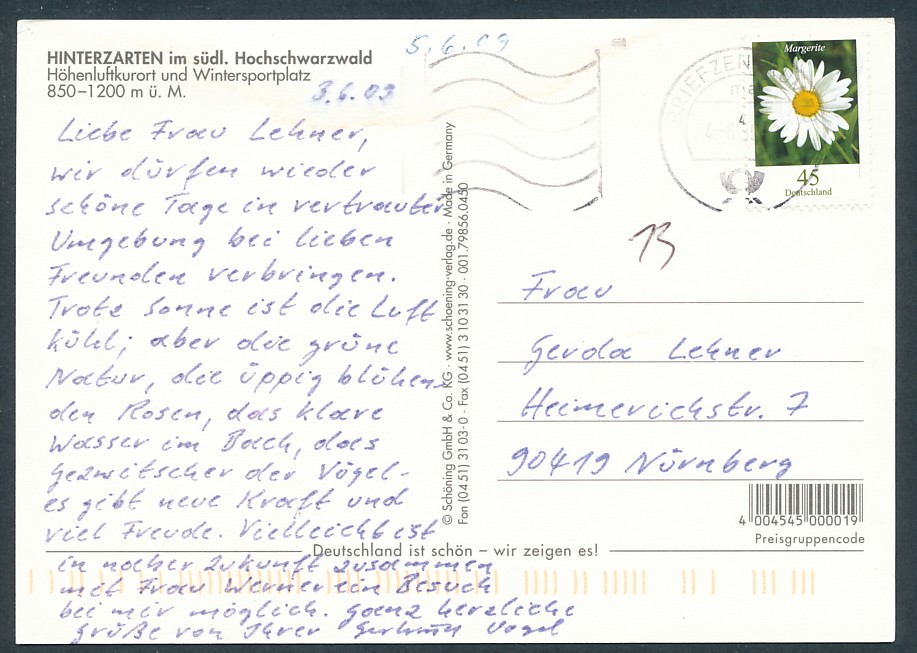 HINTERZARTEN im südl. Hochschwarzwald
Höhenluftkurort und Wintersportplatz
850–1200 m ü. M.
5.6.09
3.6.09
Liebe Frau Lehner,
wir dürfen wieder
schöne Tage in vertrauter
Umgebung bei lieben
Freunden verbringen.
Trotz Sonne ist die Luft
kühl; aber die grüne
Natur, die üppig blühen-
den Rosen, das klare
Wasser im Bach, das
Gezwitscher der Vögel-
es gibt neue Kraft und
viel Freude. Vielleicht ist
in naher Zukunft zusammen
mit Frau Werner ein Besuch
bei mir möglich. Ganz herzliche
Grüße von Ihrer Gerhild Vogel
© Schöning GmbH & Co. KG · www.schoening-verlag.de · Made in Germany
Fon (0451) 3103-0 · Fax (0451) 3103130 · 001.79856.0450
BRIEFZEN
Margerite
45
Deutschland
13
Frau
Gerda Lehner
Heimerichstr. 7
90419 Nürnberg
4 004545 000019
Preisgruppencode
Deutschland ist schön – wir zeigen es!